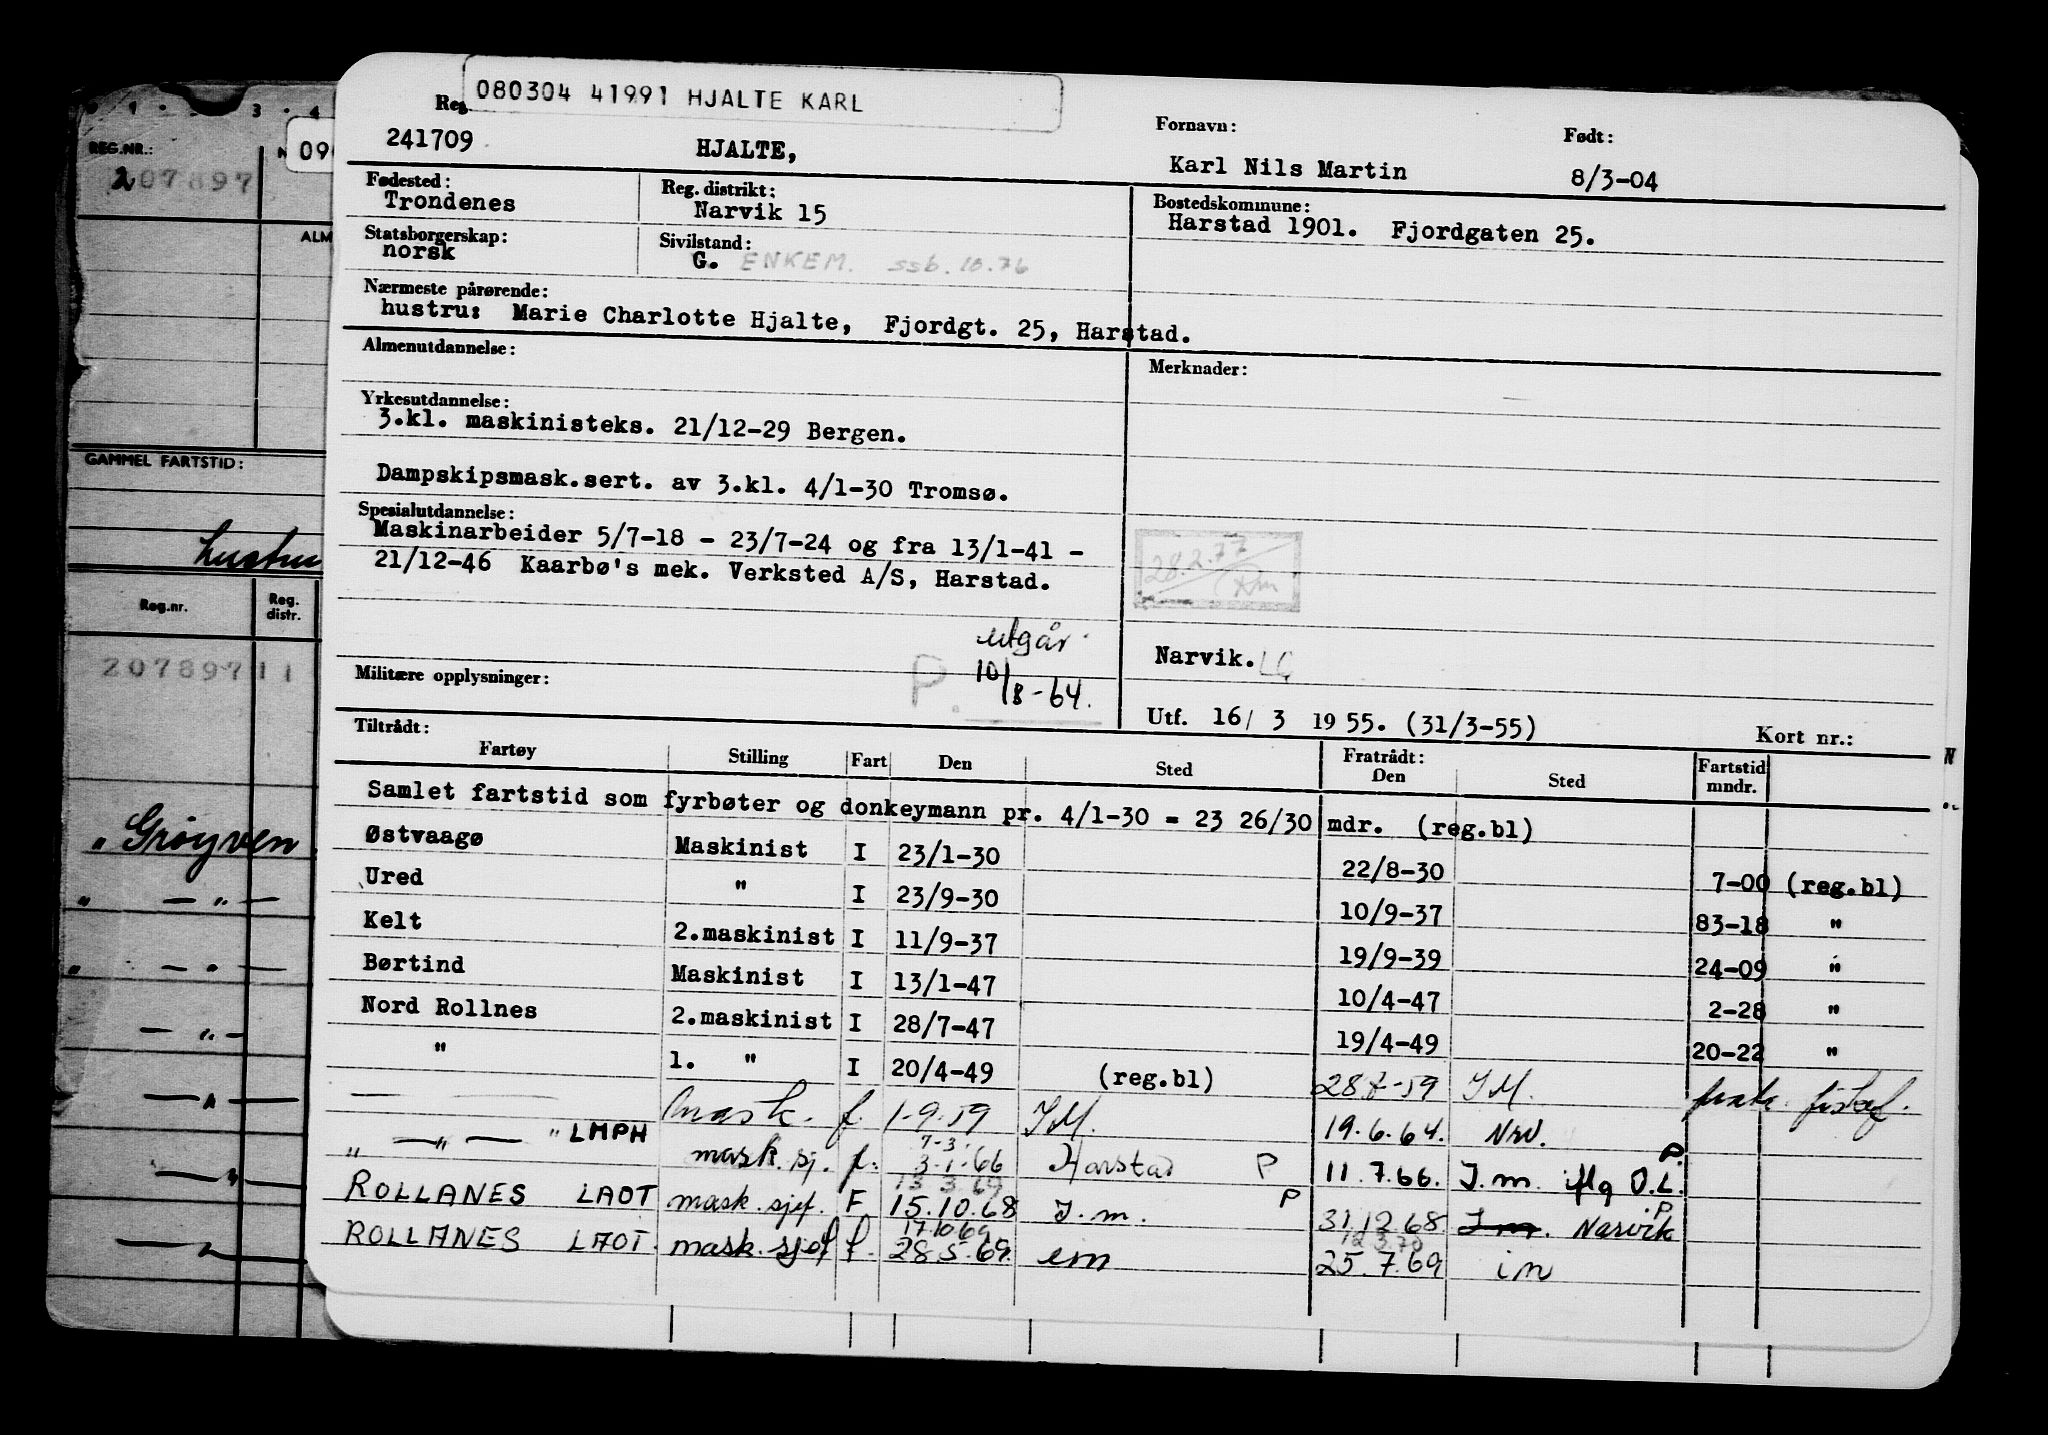 080304 41991 HJALTE KARL
Reg
241709
HJALTE,
Fornavn:
Karl Nils Martin
Født:
8/3-04
Fødested:
Trondenes
Reg. distrikt:
Narvik 15
Bostedskommune:
Harstad 1901. Fjordgaten 25.
Statsborgerskap:
norsk
Sivilstand:
G. ENKEM. ssb. 10.76
Nærmeste pårørende:
hustru: Marie Charlotte Hjalte, Fjordgt. 25, Harstad.
Almenutdannelse:
Merknader:
Yrkesutdannelse:
3.kl. maskinisteks. 21/12-29 Bergen.
Dampskipsmask.sert. av 3.kl. 4/1-30 Tromsø.
Spesialutdannelse:
Maskinarbeider 5/7-18 - 23/7-24 og fra 13/1-41 -
21/12-46 Kaarbø's mek. Verksted A/S, Harstad.
28.2.77
utgår
P. 10/8-64.
Narvik.
Militære opplysninger:
Utf. 16/ 3 19 55. (31/3-55)
Kort nr.:
Tiltrådt:
Fartøy Stilling Fart Den Sted Fratrådt: Den Sted Fartstid mndr.
Samlet fartstid som fyrbøter og donkeymann pr. 4/1-30 = 23 26/30 mdr. (reg.bl)
Østvaagø Maskinist I 23/1-30 22/8-30 7-00 (reg.bl)
Ured " I 23/9-30 10/9-37 83-18 "
Kelt 2.maskinist I 11/9-37 19/9-39 24-09 "
Børtind Maskinist I 13/1-47 10/4-47 2-28 "
Nord Rollnes 2.maskinist I 28/7-47 19/4-49 20-22 "
" 1. " I 20/4-49 (reg.bl) 28.7-59 IM.
mask. f. 1-9.59 IM. 19.6.64. Nrv.
" — " — " LMPH mask.sj. f. 7-3. 3.1.66 Harstad P 11.7.66. I.m. iflg O.L. P.
ROLLANES LAOT mask.sjef. F 13.3.69 15.10.68 I.m. P 31.12.68. I.m. Narvik P
ROLLANES LAOT. mask.sjef f. 17.10.69 28.5.69. im 12.3.70 25.7.69 im
1 3 4
REG.NR.:
207897
ALM
GAMMEL FARTSTID:
hustru
Reg.nr.
Reg. distr.
207897 11
" Grøyven